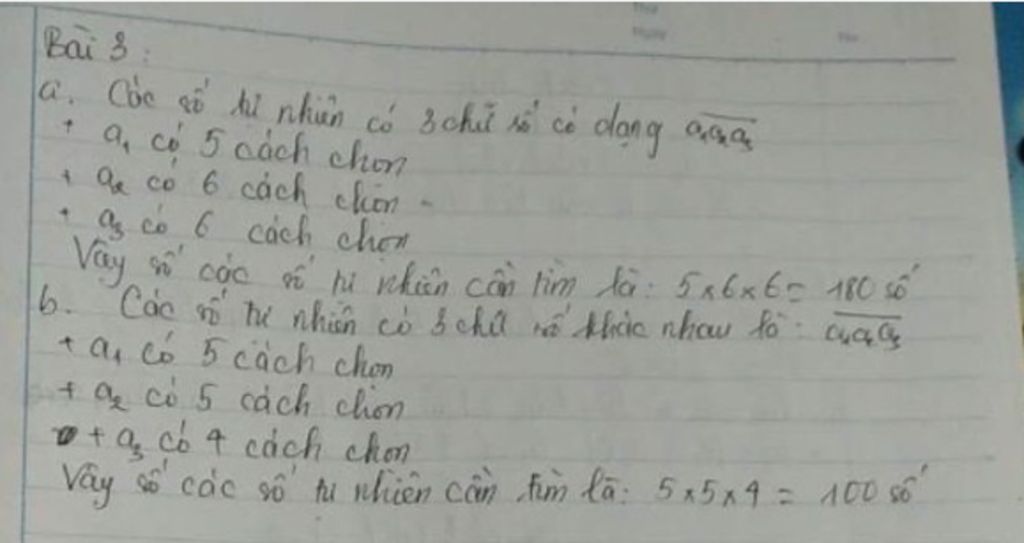 Bài 3:
a. Các số tự nhiên có 3 chữ số có dạng a₁a₂a₃
+ a₁ có 5 cách chon
+ a₂ có 6 cách chon
+ a₃ có 6 cách chon
Vây số các số tự nhiên cần tìm là: 5x6x6 = 180 số
b. Các số tự nhiên có 3 chữ số khác nhau là: a₁a₂a₃
+ a₁ có 5 cách chon
+ a₂ có 5 cách chon
+ a₃ có 4 cách chon
Vây số các số tự nhiên cần tìm là: 5x5x4 = 100 số